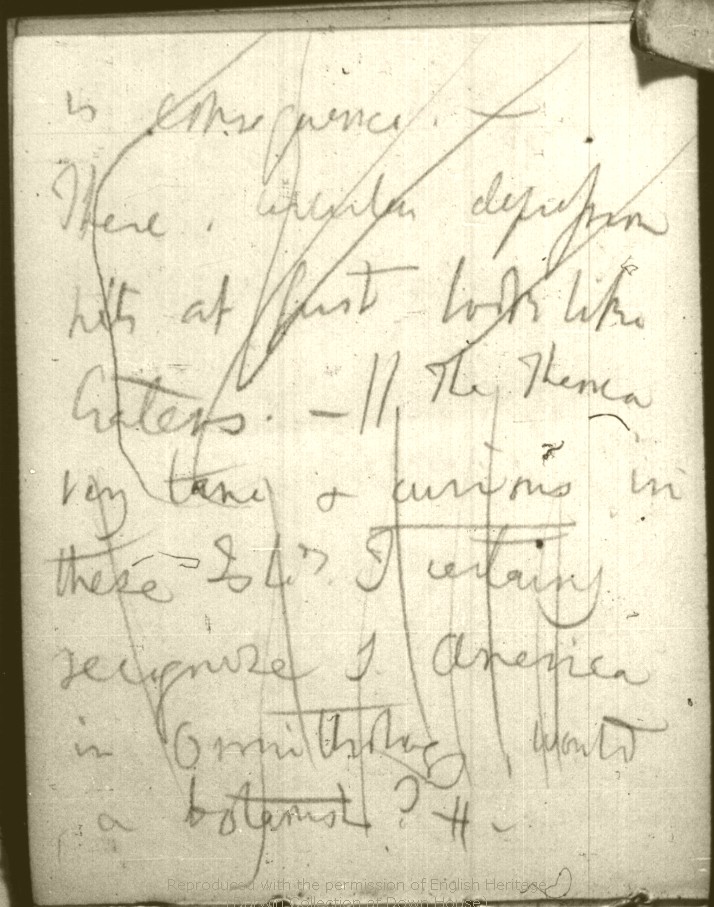 is consequence. —
These. circular depression
pits at first look like
Craters. — || The Thenca
very tame & curious in
these Islds. I certainly
recognize S. America
in Ornithology, would
a botanist? #
Reproduced with the permission of English Heritage
(Darwin Collection at Down House)